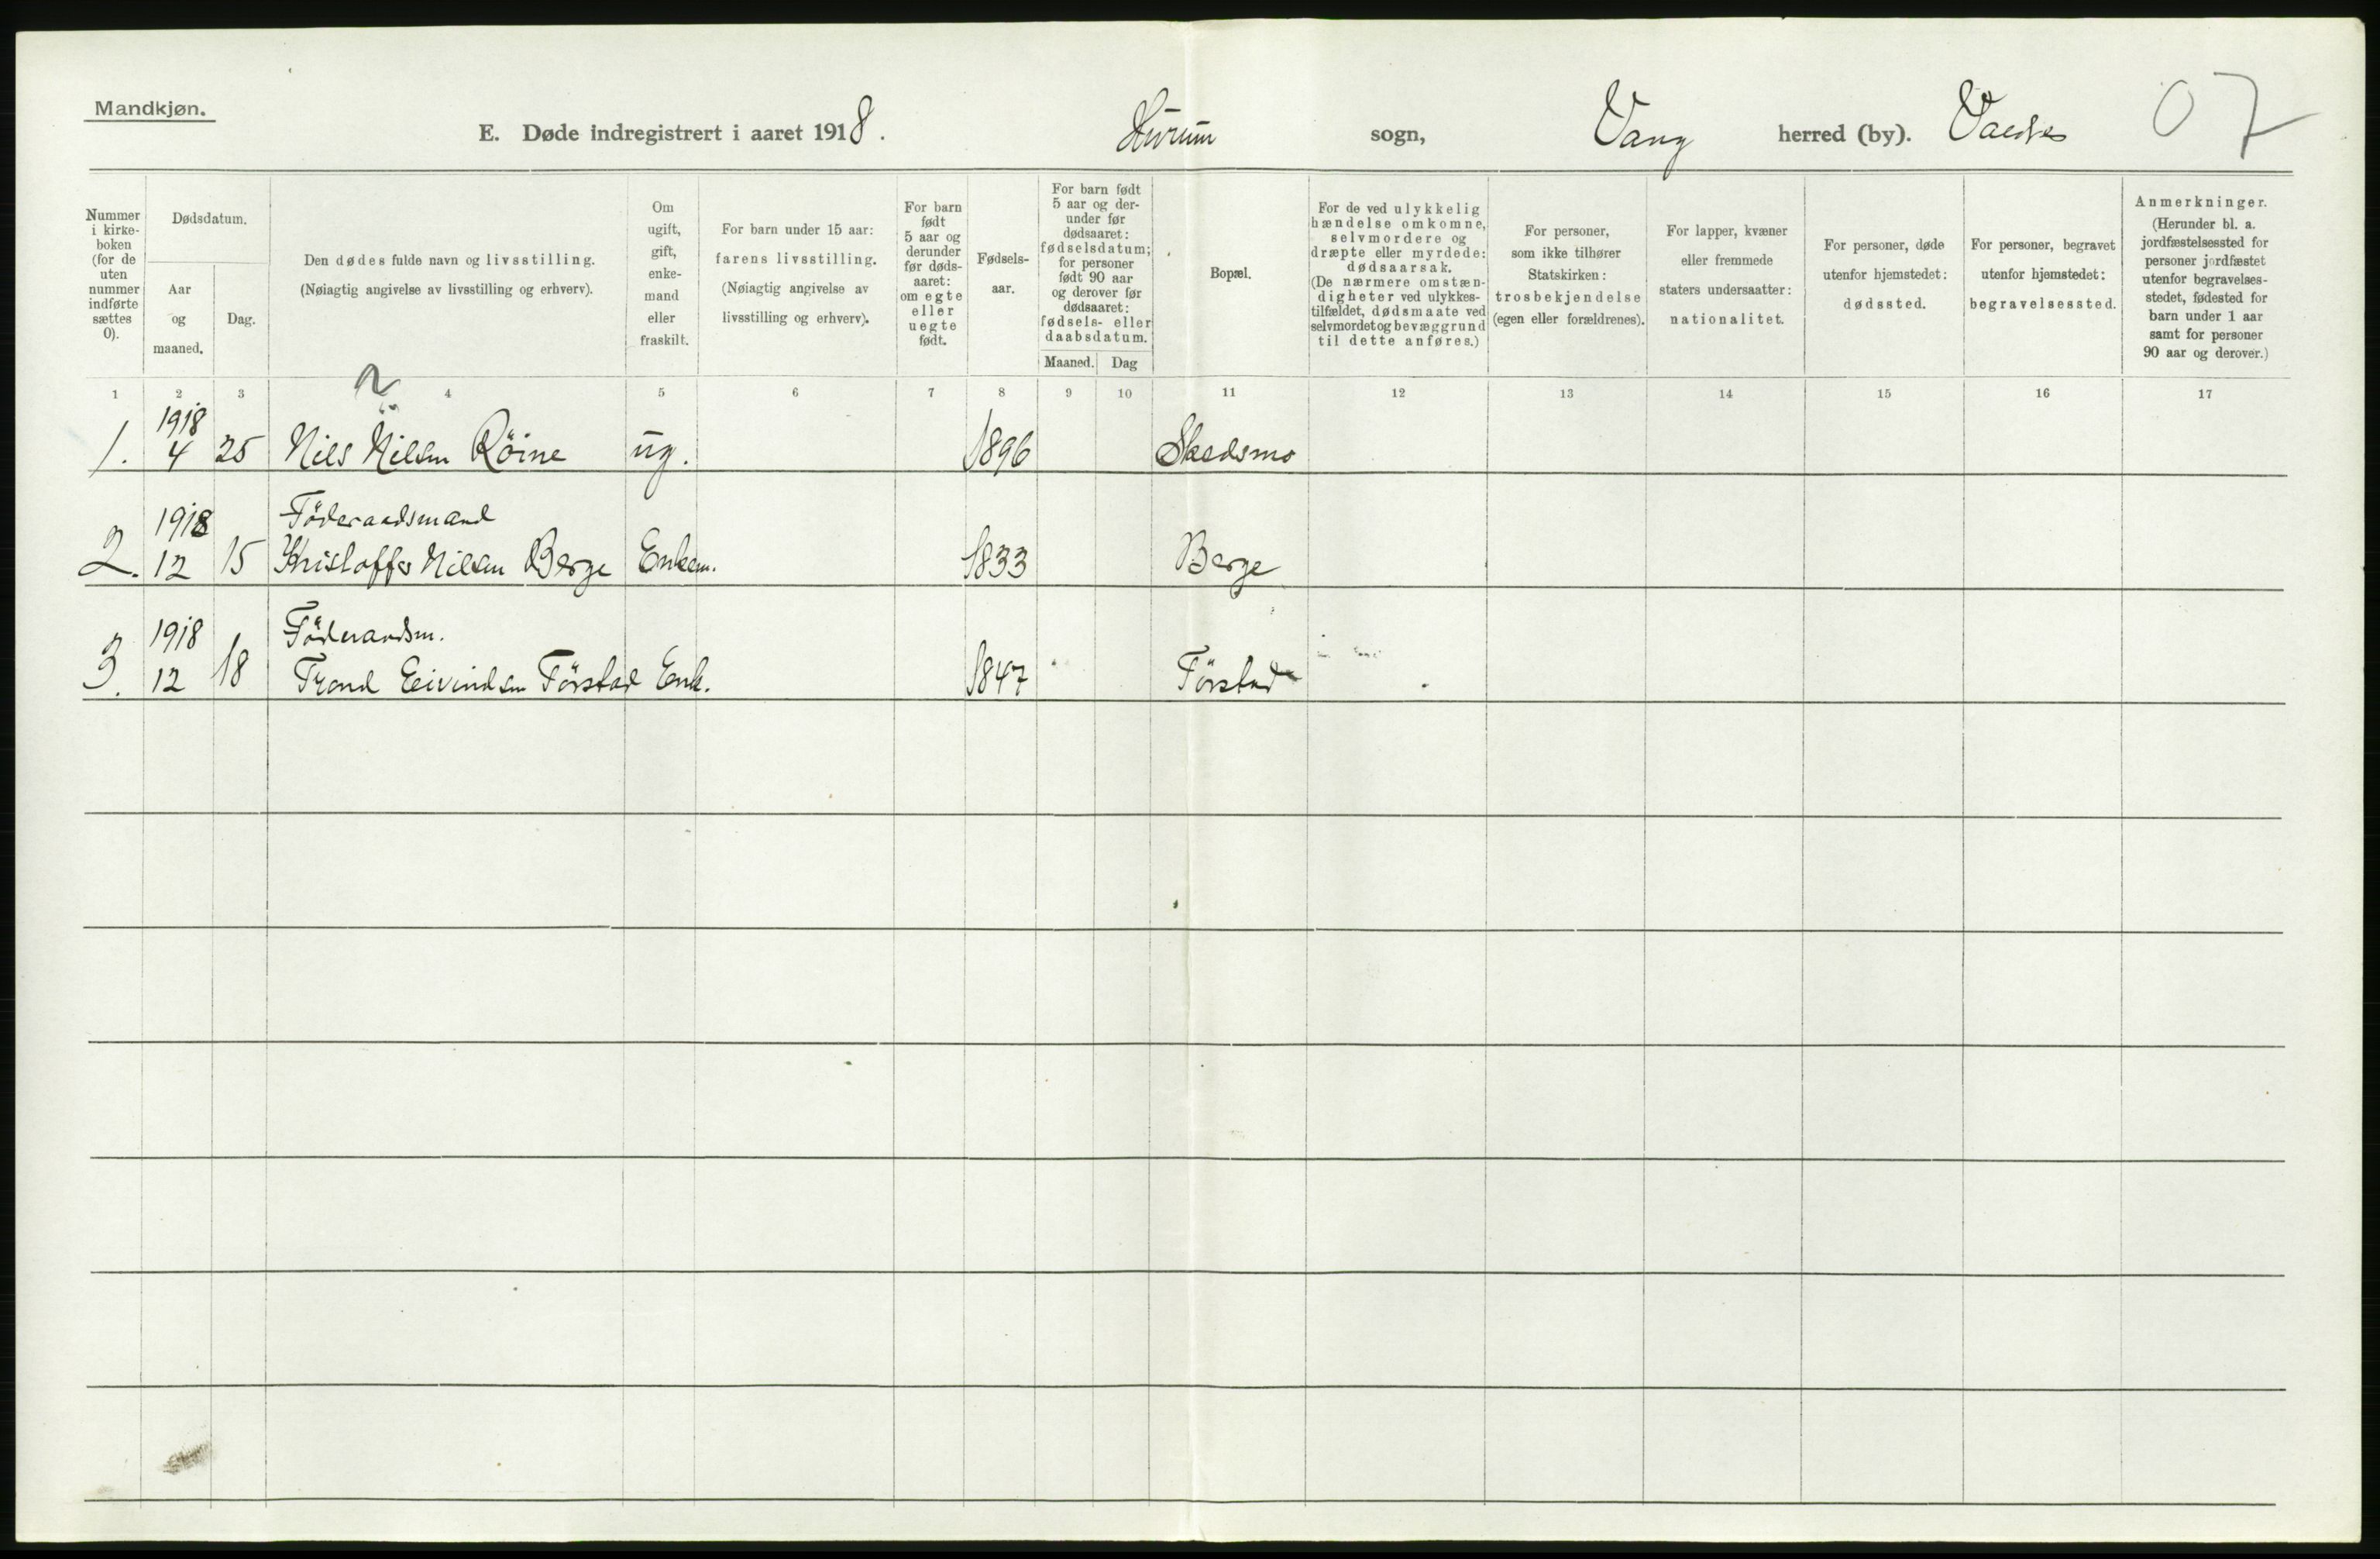 Mandkjøn.
E. Døde indregistrert i aaret 1918. Hurum sogn, Vang herred (by). 07
Nummer i kirke-boken (for de uten nummer indførte sættes 0).
Dødsdatum.
Aar og maaned.
Dag.
Den dødes fulde navn og livsstilling.
(Nøiagtig angivelse av livsstilling og erhverv).
Om ugift, gift, enke-mand eller fraskilt.
For barn under 15 aar:
farens livsstilling.
(Nøiagtig angivelse av
livsstilling og erhverv).
For barn født 5 aar og derunder før døds-aaret: om egte eller uegte født.
Fødsels-aar.
For barn født 5 aar og der-under før dødsaaret: fødselsdatum; for personer født 90 aar og derover før dødsaaret: fødsels- eller daabsdatum.
Maaned. Dag
Bopæl.
For de ved ulykkelig hændelse omkomne, selvmordere og dræpte eller myrdede: dødsaarsak. (De nærmere omstæn-digheter ved ulykkes-tilfældet, dødsmaate ved selvmordet og bevæggrund til dette anføres.)
For personer, som ikke tilhører Statskirken: trosbekjendelse (egen eller forældrenes).
For lapper, kvæner eller fremmede staters undersaatter: nationalitet.
For personer, døde utenfor hjemstedet: dødssted.
For personer, begravet utenfor hjemstedet: begravelsessted.
Anmerkninger. (Herunder bl. a. jordfæstelsessted for personer jordfæstet utenfor begravelses-stedet, fødested for barn under 1 aar samt for personer 90 aar og derover.)
1 2 3 4 5 6 7 8 9 10 11 12 13 14 15 16 17
1918
1. 4 25 Nils Nilsen Röine ug. 1896 Skedsmo
1918 Föderaadsmand
2. 12 15 Kristoffer Nilsen Berge Enkem. 1833 Berge
1918 Föderaadsm.
3. 12 18 Trond Eivindsen Förstad Enk. 1847 Förstad